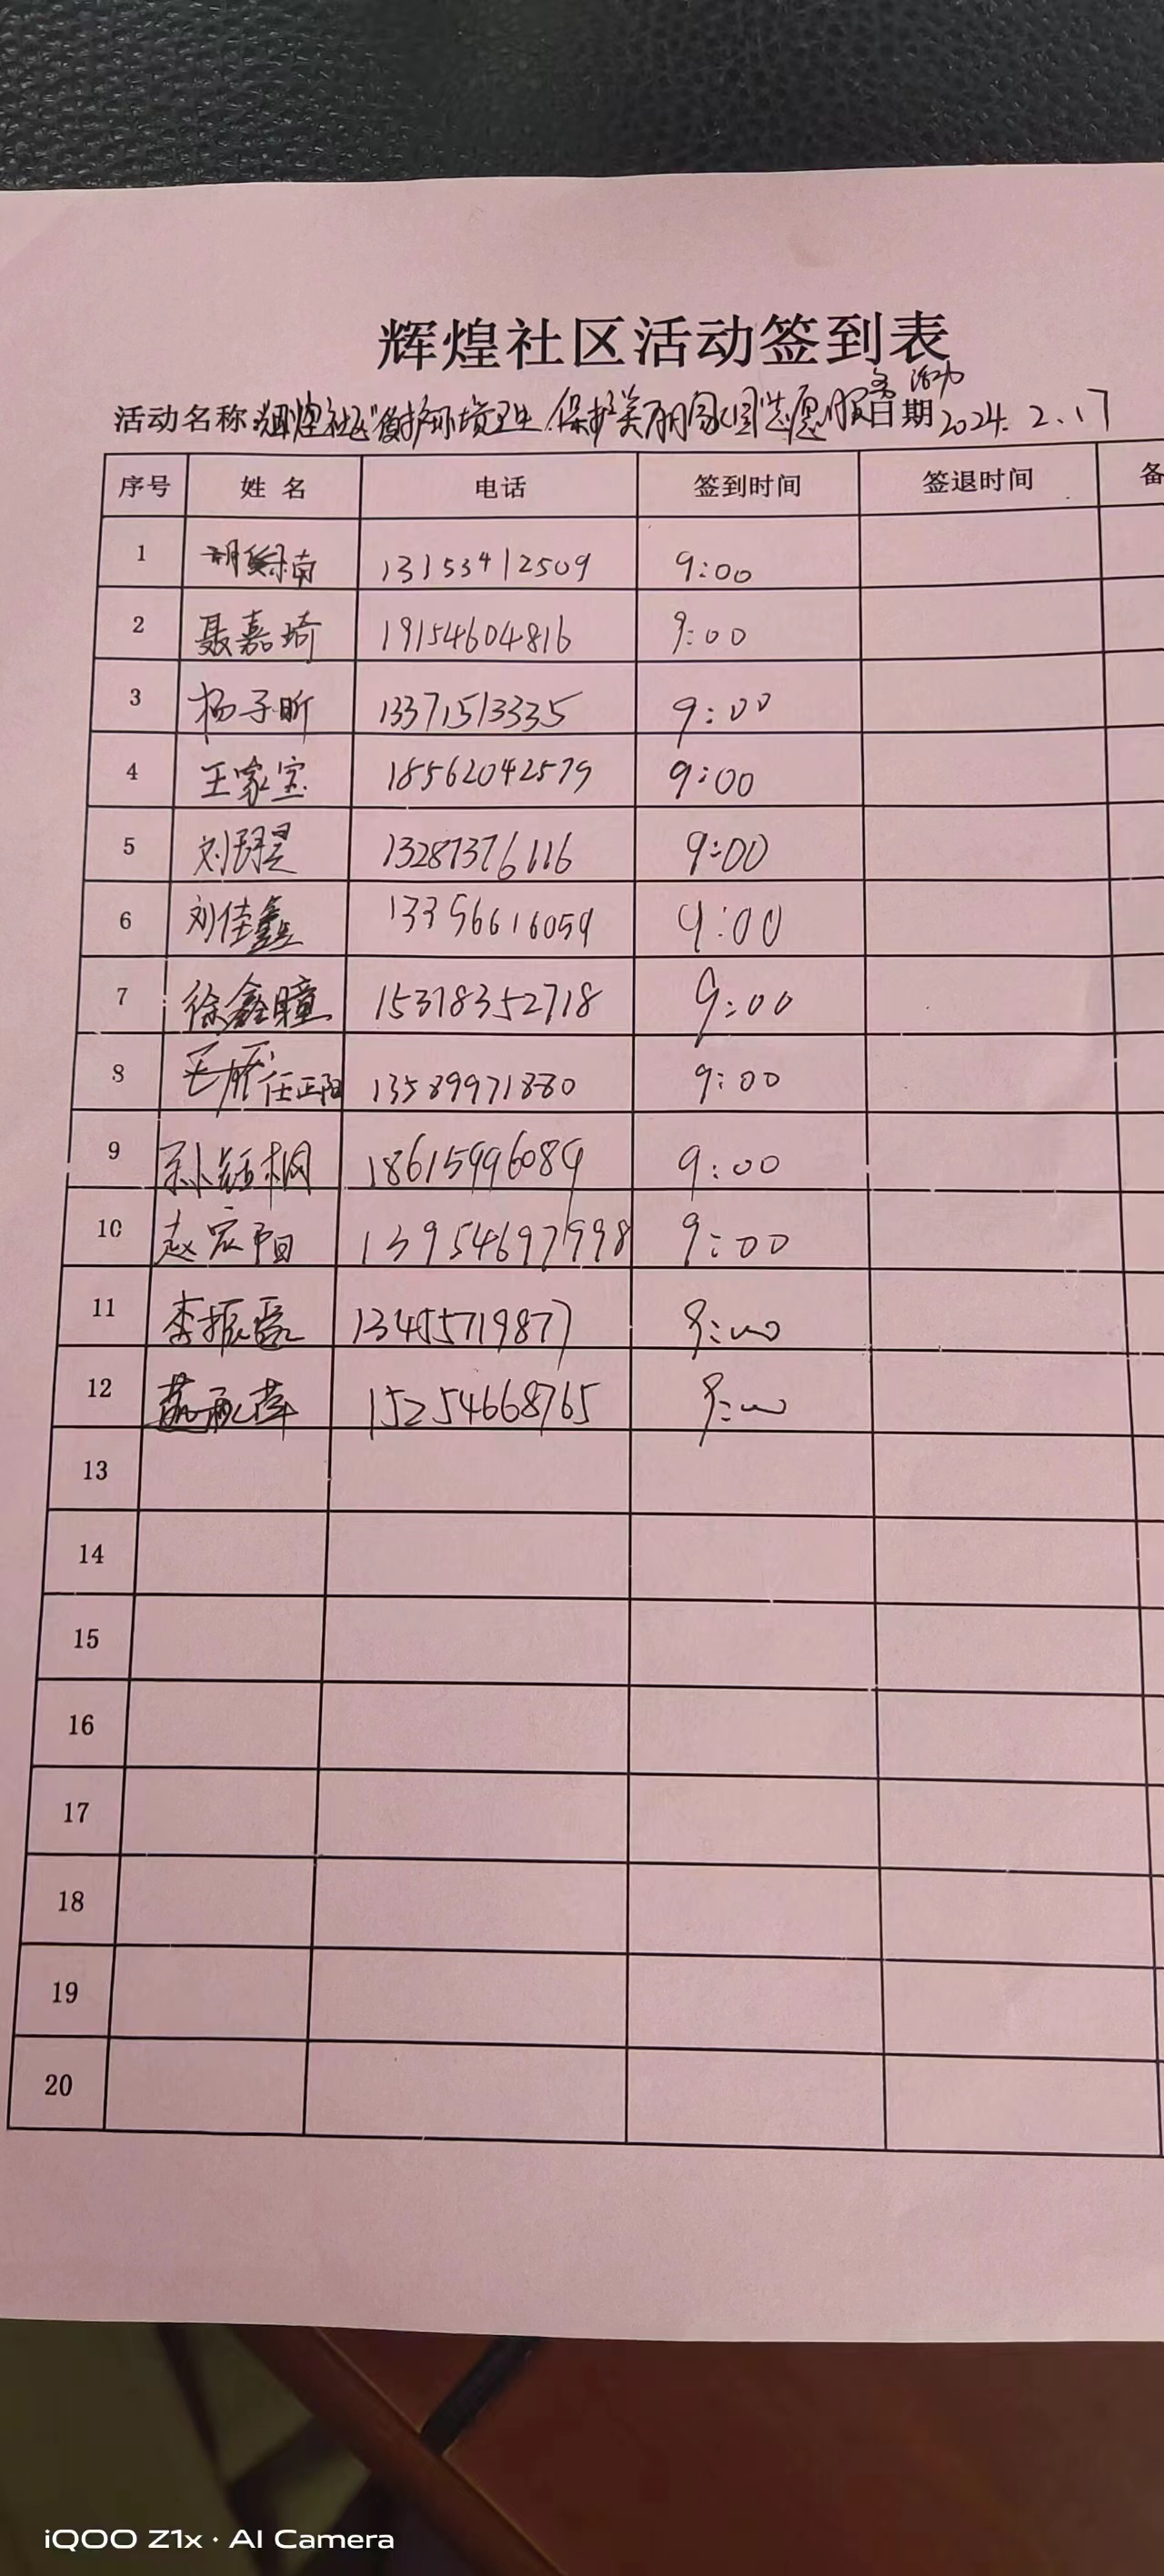 辉煌社区活动签到表
务 活动
活动名称:辉煌社区"维护环境卫生,保护美丽家园"志愿服日期2024.2.17
序号 姓 名 电话 签到时间 签退时间 备
1 南 13153412509 9:00
2 聂嘉琦 19154604816 9:00
3 杨子昕 13371513335 9:00
4 王家宝 18562042579 9:00
5 刘 13287376116 9:00
6 刘佳鑫 13356616059 9:00
7 徐鑫瞳 15318352718 9:00
8 任正阳 13589971880 9:00
9 孙钰桐 18615996089 9:00
10 赵宸阳 13954697998 9:00
11 李振 13455719877 9:00
12 15254668765 9:00
13
14
15
16
17
18
19
20
iQOO Z1x · AI Camera